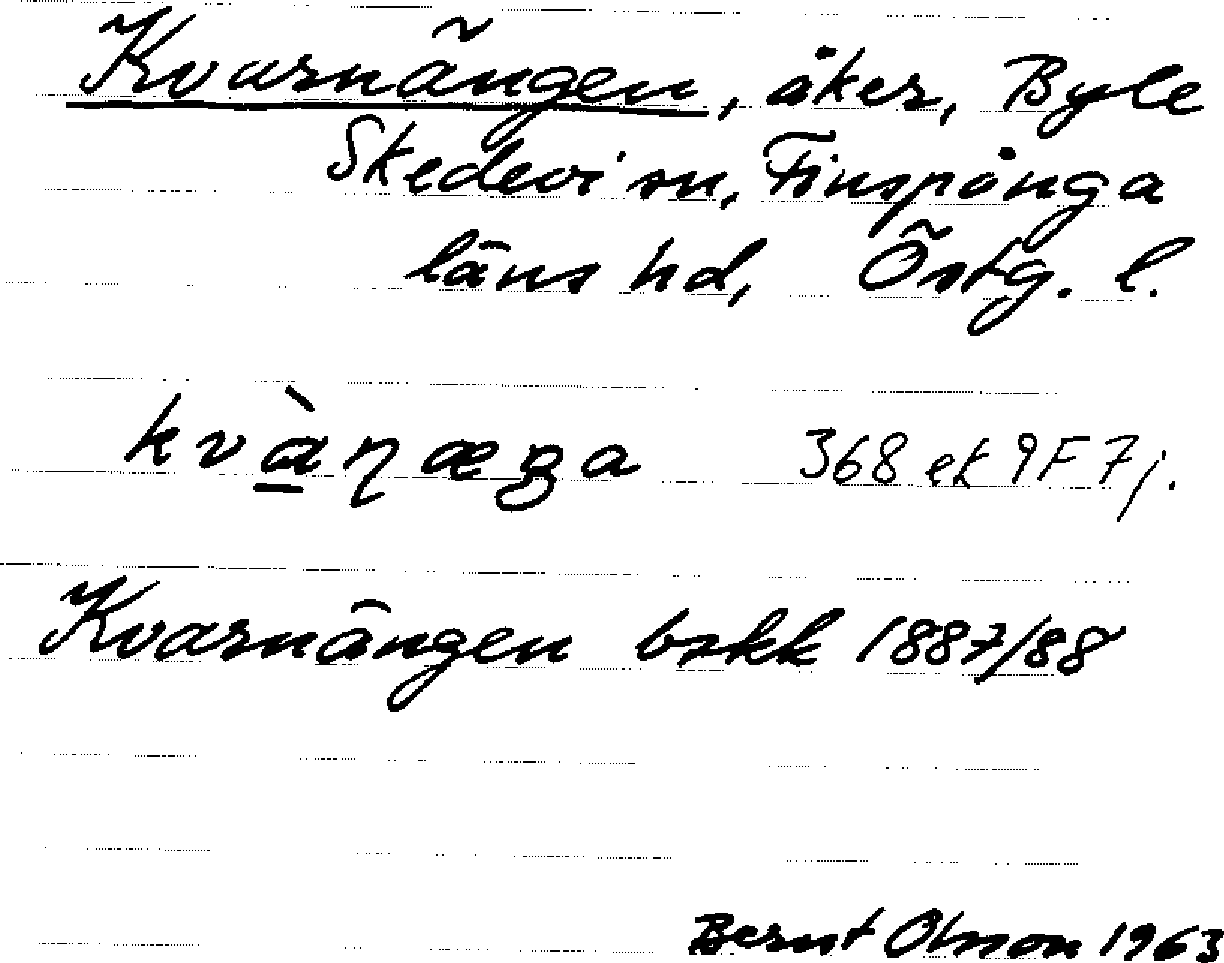 Kvarnängen, åker, Byle
Skedevi sn, Finspånga
läns hd, Östg. l.
kvàṉæŋa 368 ek 9F 7j.
Kvarnängen bzkk 1887/88
Bernt Olsson 1963